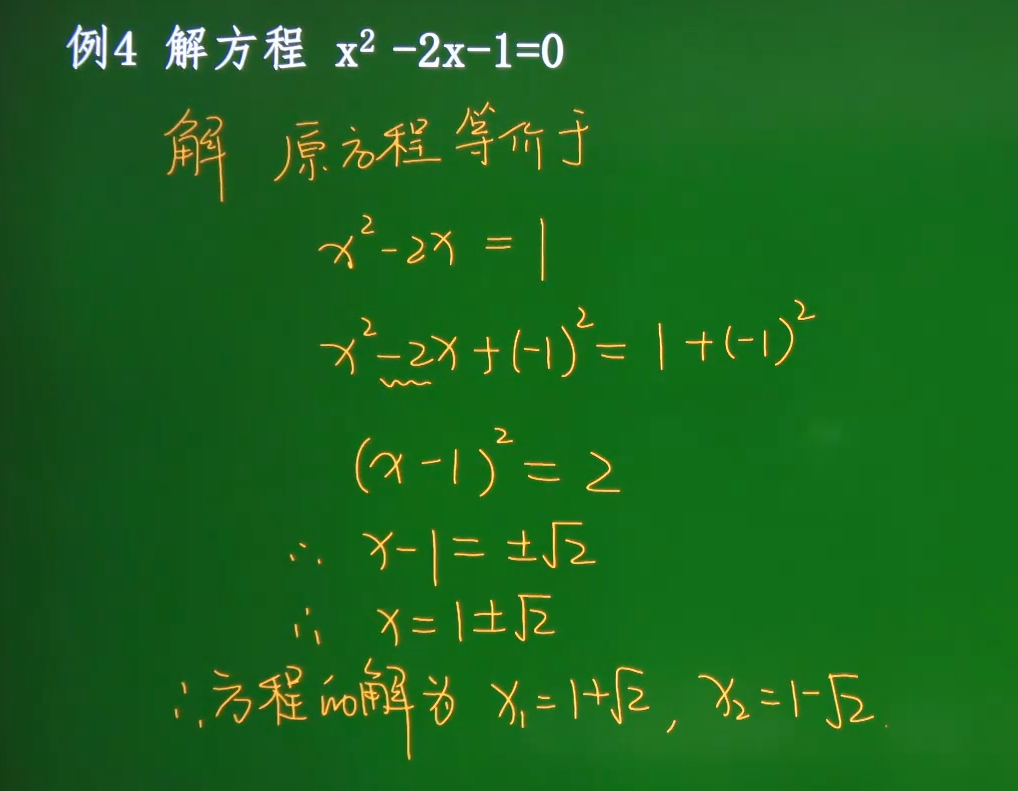 例4 解方程 x² -2x-1=0
解 原方程等价于
x²-2x = 1
x²-2x+(-1)²= 1+(-1)²
(x-1)²= 2
∴ x-1= ±√2
∴ x=1±√2
∴方程的解为 x₁=1+√2, x₂=1-√2.